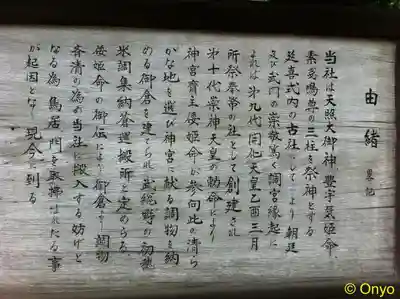 由緒
畧記
当社は天照大御神、豊宇気姫命、
素盞嗚尊の三柱を祭神とする
延喜式内の古社にして古より朝廷
及び武門の崇敬篤く調宮縁起に
よれば第九代開化天皇乙酉三月
所祭奉幣の社として創建され
第十代崇神天皇の勅命により
神宮斎主倭姫命が参向此の清ら
かな地を選び神宮に献る調物を納
める御倉を建てられ武総野の初穂
米調集納蒼運搬所と定めらる
倭姫命の御伝により御倉より調物
斉清の為め当社に搬入する妨げと
なる為鳥居、門を取拂はれたる事
が起因となり現今に到る
© Onyo